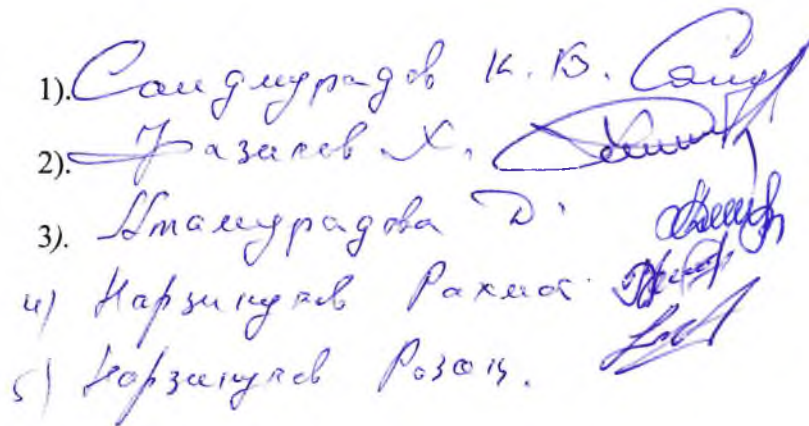 1). Саидмурадов К. Б.
2). Фазилов Х.
3). Атамурадова Д.
4) Нарзикулов Рахмат
5) Нарзикулов Розоқ.